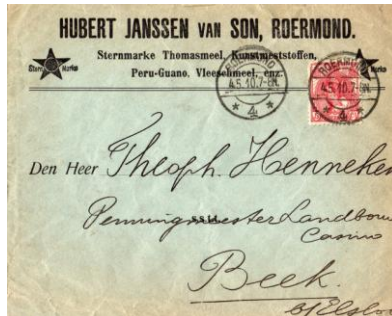 HUBERT JANSSEN VAN SON, ROERMOND.
Sternmarke Thomasmeel, Kunstmeststoffen,
Peru-Guano, Vleeschmeel, enz.
Stern Marke
Marke
ROERMOND
4.5.10.7-8N.
4
ROERMOND
4.5.10.7-8N.
4
Den Heer Theoph. Henneken
Penningmeester Landbouw
Casino
Beek.
b/Elsloo